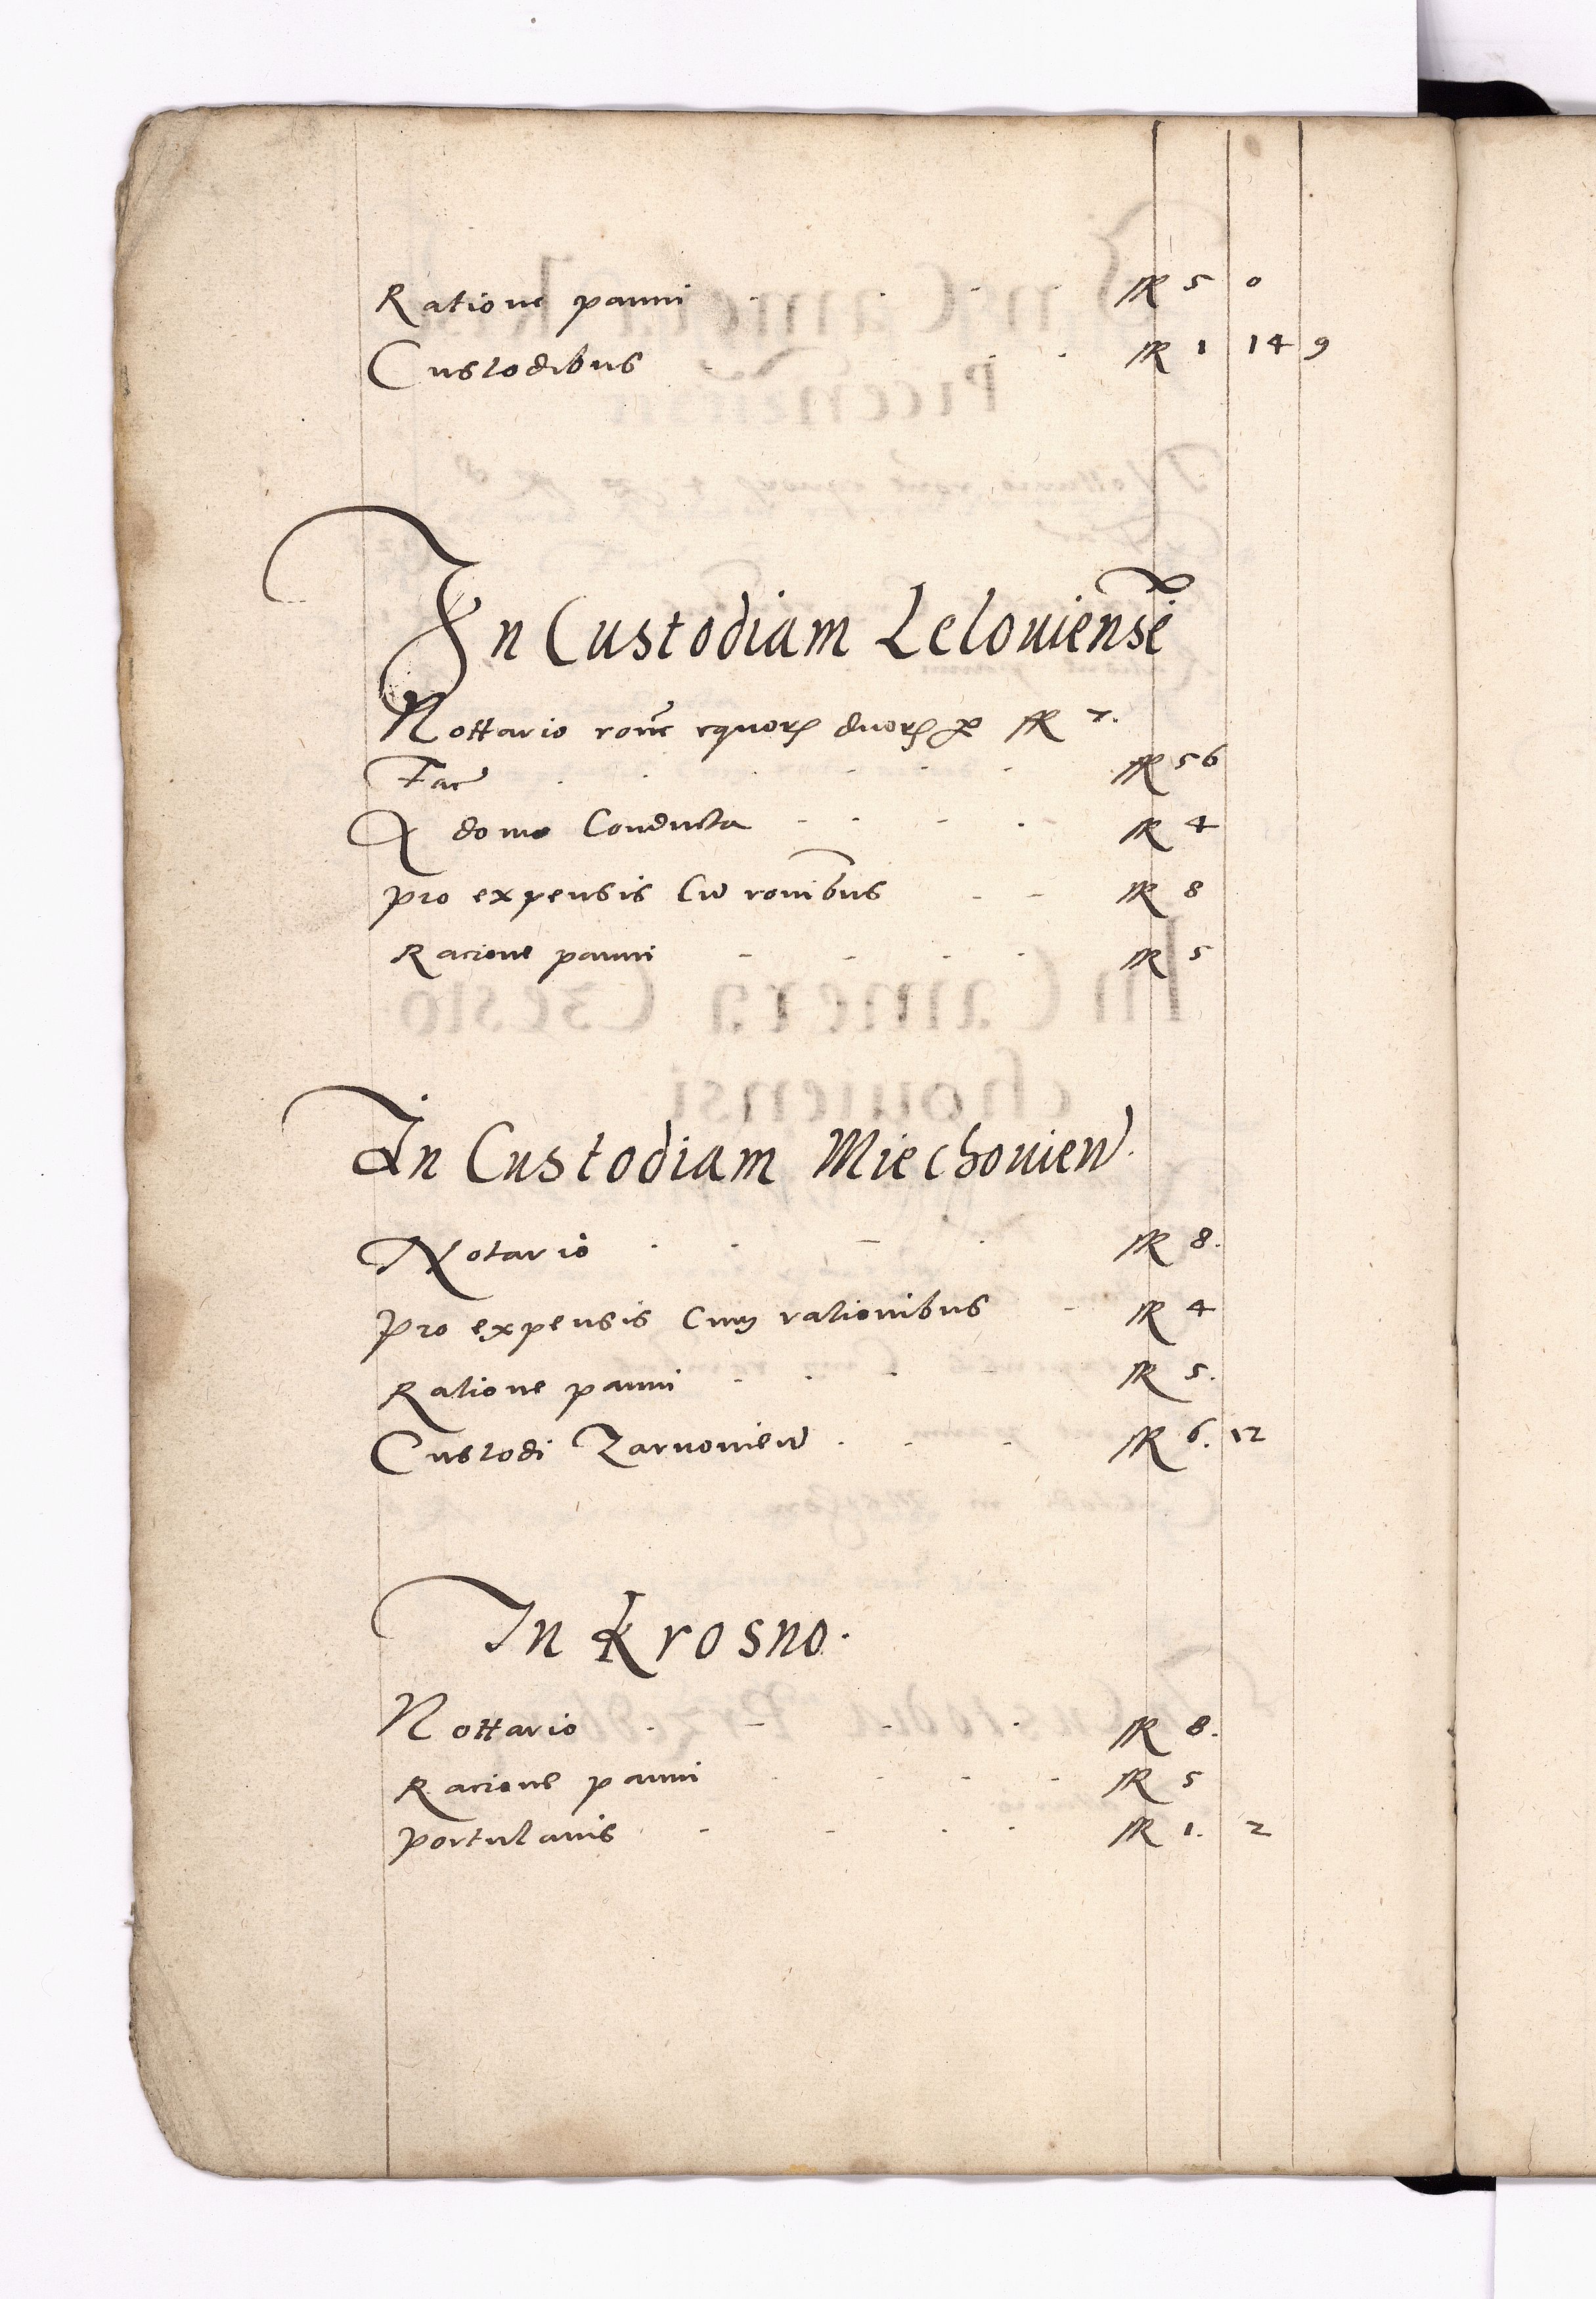 Ratione panni fR 5 0
Custodibus fR 1 14 9
In Custodiam Lelouiensẽ
Nottario rõne equorꝝ duorꝝ fR 7.
Fac fR 56
A domo Conducta fR 4
pro expensis Cũ ronibus fR 8
Racione panni fR 5
In Custodiam Miechouien̄.
Notario fR 8.
Pro expensis Cum rationibus fR 4
Ratione panni fR 5.
Custodi Zarnouien̄ fR 6. 12
In Krosno.
Nottario fR 8.
Racione panni fR 5
portulanis fR 1. 2